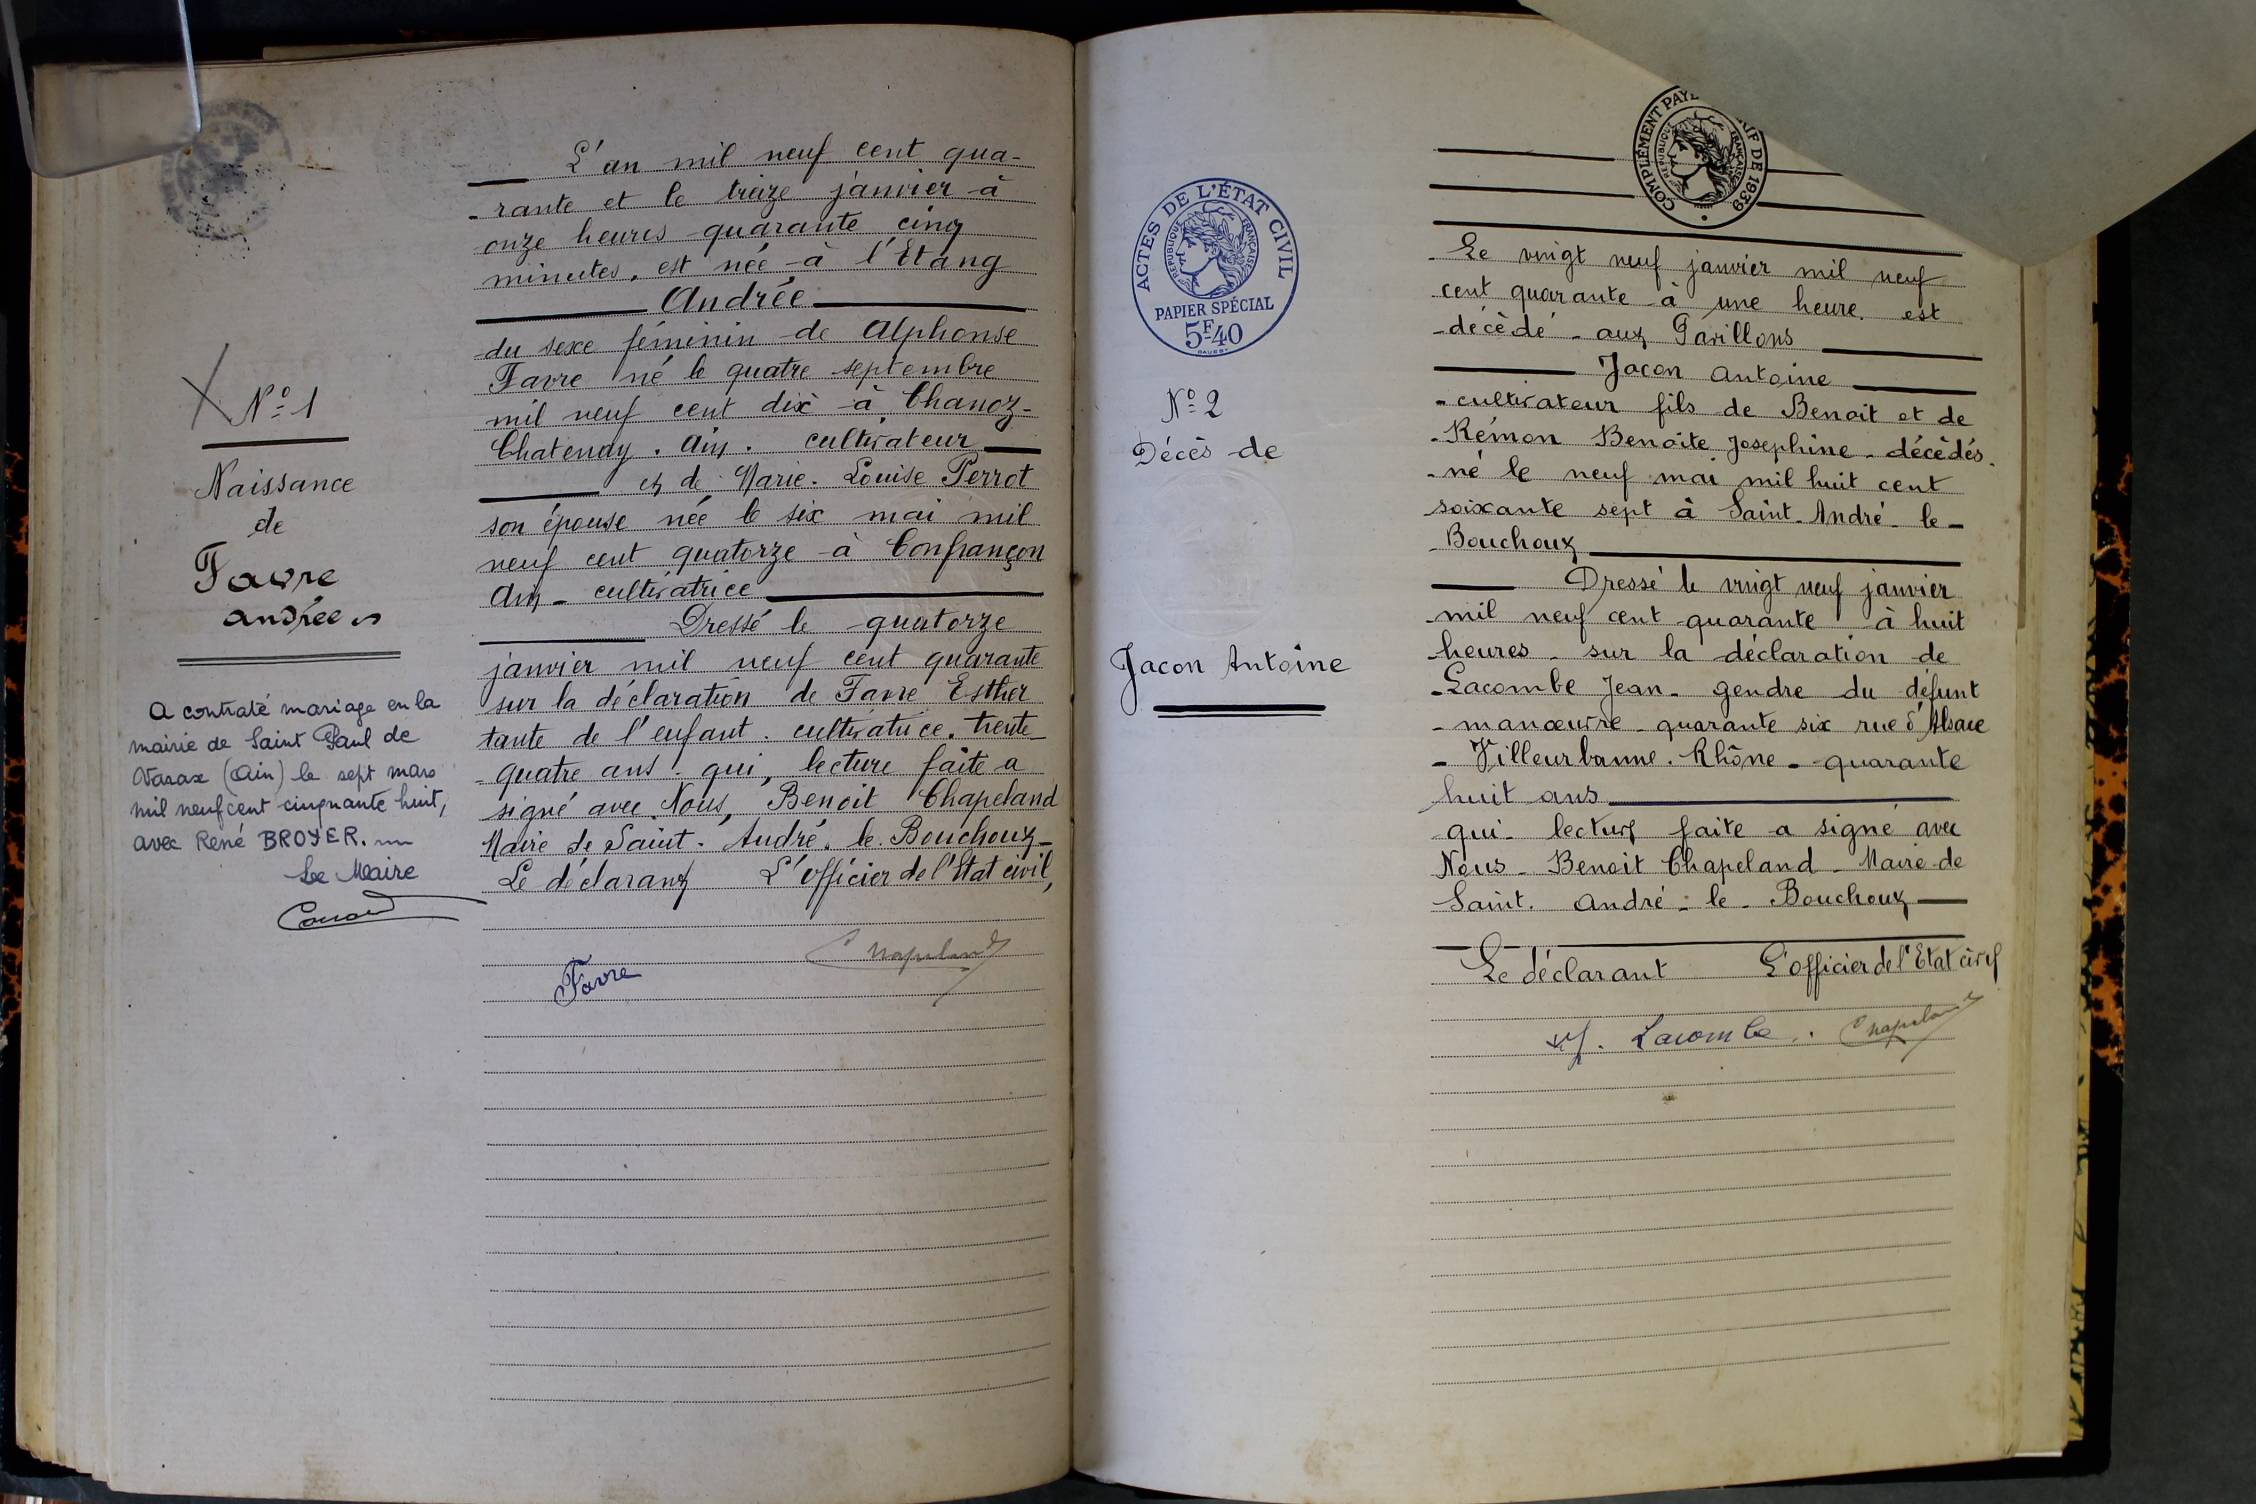 L'an mil neuf cent qua-
rante et le treize janvier à
onze heures quarante cinq
minutes, est née à l'Etang
Andrée
du sexe féminin de Alphonse
Favre né le quatre septembre
mil neuf cent dix à Chanoz-
Chatenay. Ain. cultivateur
et de Marie. Louise Perrot
son épouse née le six mai mil
neuf cent quatorze à Confrançon
Ain - cultivatrice
Dressé le quatorze
janvier mil neuf cent quarante
sur la déclaration de Favre Esther
tante de l'enfant. cultivatrice. trente
quatre ans. qui, lecture faite a
signé avec Nous, Benoit Chapeland
Maire de Saint. André. le. Bouchoux
Le déclarant L'officier de l'Etat civil,
Favre Chapeland
Nº 1
Naissance
de
Favre
Andrée
A contraté mariage en la
mairie de Saint Paul de
Varax (Ain) le sept mars
mil neuf cent cinquante huit,
avec René BROYER.
Le Maire
ACTES DE L'ÉTAT CIVIL
RÉPUBLIQUE FRANÇAISE
PAPIER SPÉCIAL
5F40
Nº 2
Décès de
Jacon Antoine
COMPLÉMENT PAYÉ
RIF DE 1939
RÉPUBLIQUE FRANÇAISE
Le vingt neuf janvier mil neuf
cent quarante à une heure. est
décèdé aux Pavillons
Jacon Antoine
cultivateur fils de Benoit et de
Rémon Benoite Josephine - décèdés.
né le neuf mai mil huit cent
soixante sept à Saint-André-le-
Bouchoux
Dressé le vingt neuf janvier
mil neuf cent quarante à huit
heures - sur la déclaration de
Lacombe Jean - gendre du défunt
manœuvre - quarante six rue d'Alsace
Villeurbanne. Rhône - quarante
huit ans
qui - lecture faite a signé avec
Nous - Benoit Chapeland - Maire de
Saint. André - le - Bouchoux
Le déclarant L'officier de l'Etat civil
Lacombe. Chapeland